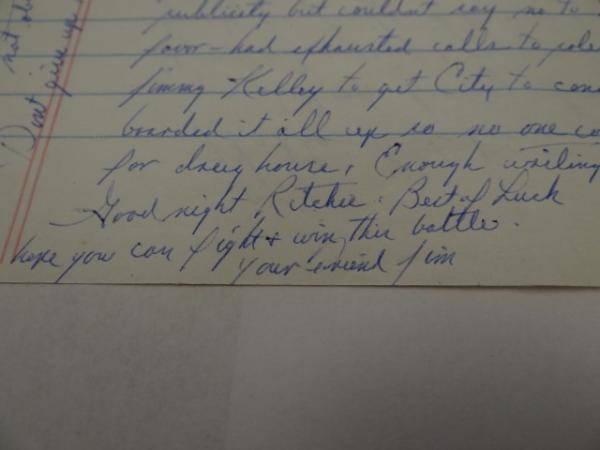 publicity but couldn't say no to
favor - had exhausted calls to
Jimmy Kelley to get City to con
boarded it all up so no one co
for drug house. Enough writing
Good night Ritchie. Best of Luck
hope you can fight & win this battle.
Your friend Jim
not
Don't give up